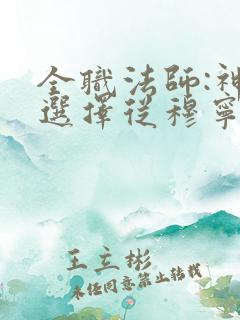 全職法師:神
選擇從穆寧
王立彬
未經同意禁止轉載